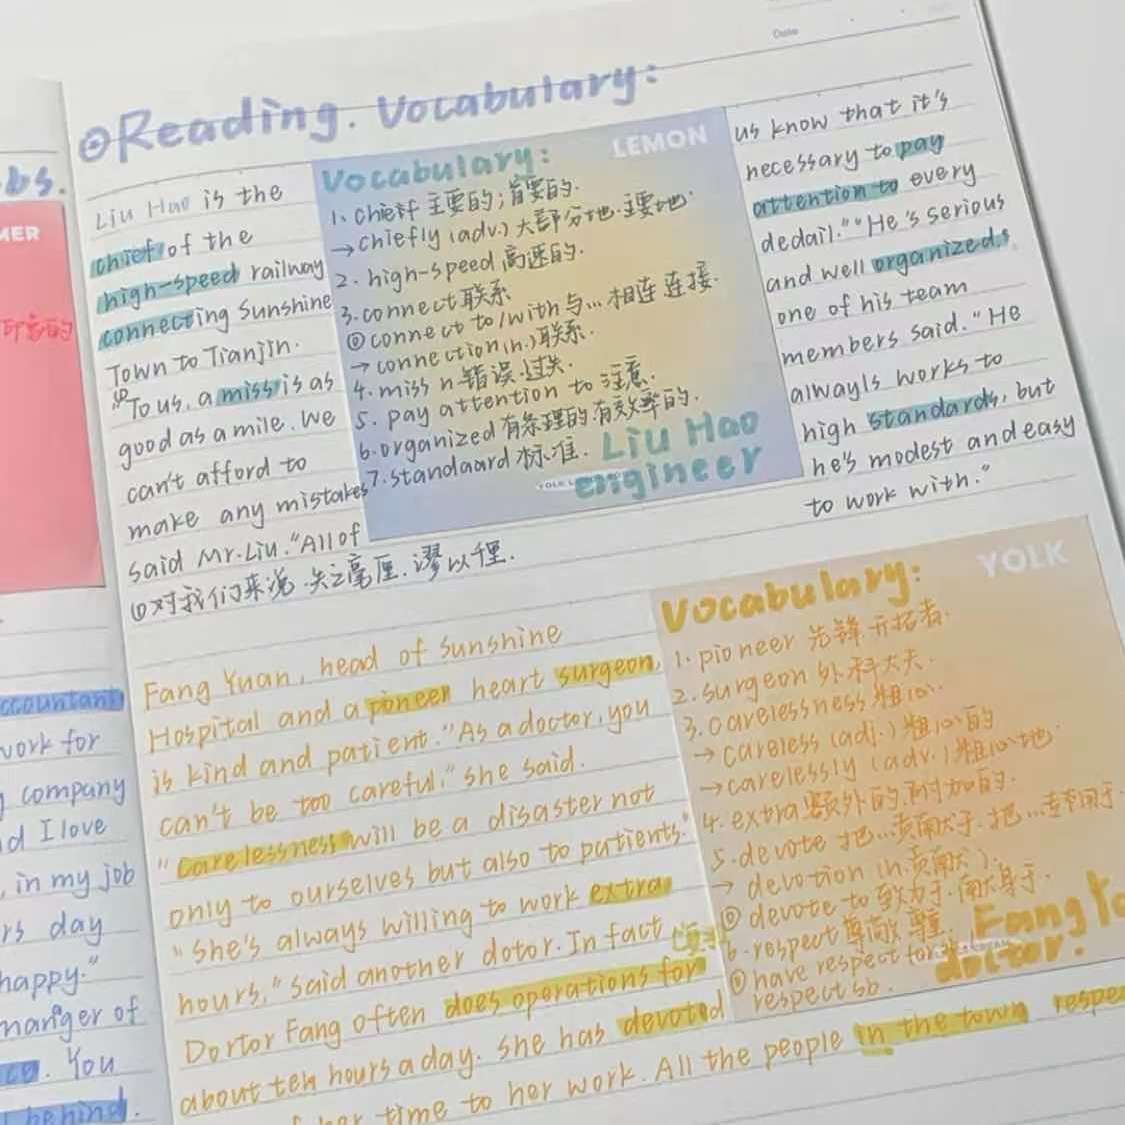 Date
⊙Reading. Vocabulary:
Liu Hao is the
chief of the
high-speed railway
connecting Sunshine
Town to Tianjin.
"To us, a miss is as
good as a mile. We
can't afford to
make any mistakes
said Mr. Liu. "All of
LEMON
Vocabulary:
1. chief 主要的;首要的.
→ chiefly (adv.) 大部分地.主要地
2. high-speed 高速的.
3. connect 联系
① connect to/with 与...相连 连接.
→ connection (n.) 联系.
4. miss n. 错误.过失.
5. pay attention to 注意.
6. organized 有条理的 有效率的.
7. standaard 标准.
Liu Hao
engineer
us know that it's
necessary to pay
attention to every
dedail." "He's serious
and well organized,
one of his team
members said. "He
alwayls works to
high standards, but
he's modest and easy
to work with."
①对我们来说.失之毫厘.谬以千里.
Fang Yuan, head of Sunshine
Hospital and a pioneer heart surgeon,
is kind and patient. "As a doctor, you
can't be too careful," she said.
"Carelessness will be a disaster not
only to ourselves but also to patients."
"She's always willing to work extra
hours," said another dotor. In fact
Dortor Fang often does operations for
about ten hours a day. She has devoted
of her time to her work. All the people in the town respe
YOLK
Vocabulary:
1. pioneer 先锋 开拓者.
2. surgeon 外科大夫.
3. carelessness 粗心.
→ careless (adj.) 粗心的
→ carelessly (adv.) 粗心地.
4. extra 额外的.附加的.
5. devote 把...贡献于.把...专用于
→ devotion (n.贡献).
① devote to 致力于.献身于.
6. respect 尊敬
① have respect for
respect sb.
Fang Yu
doctor:
bs.
MER
accountant
work for
company
d I love
, in my job
rs day
happy."
manager of
You
behind.